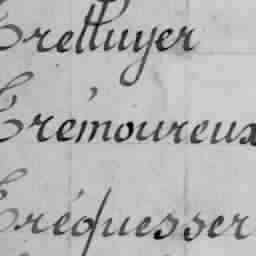 Trelluyer
Trémoureux
Tréquesser